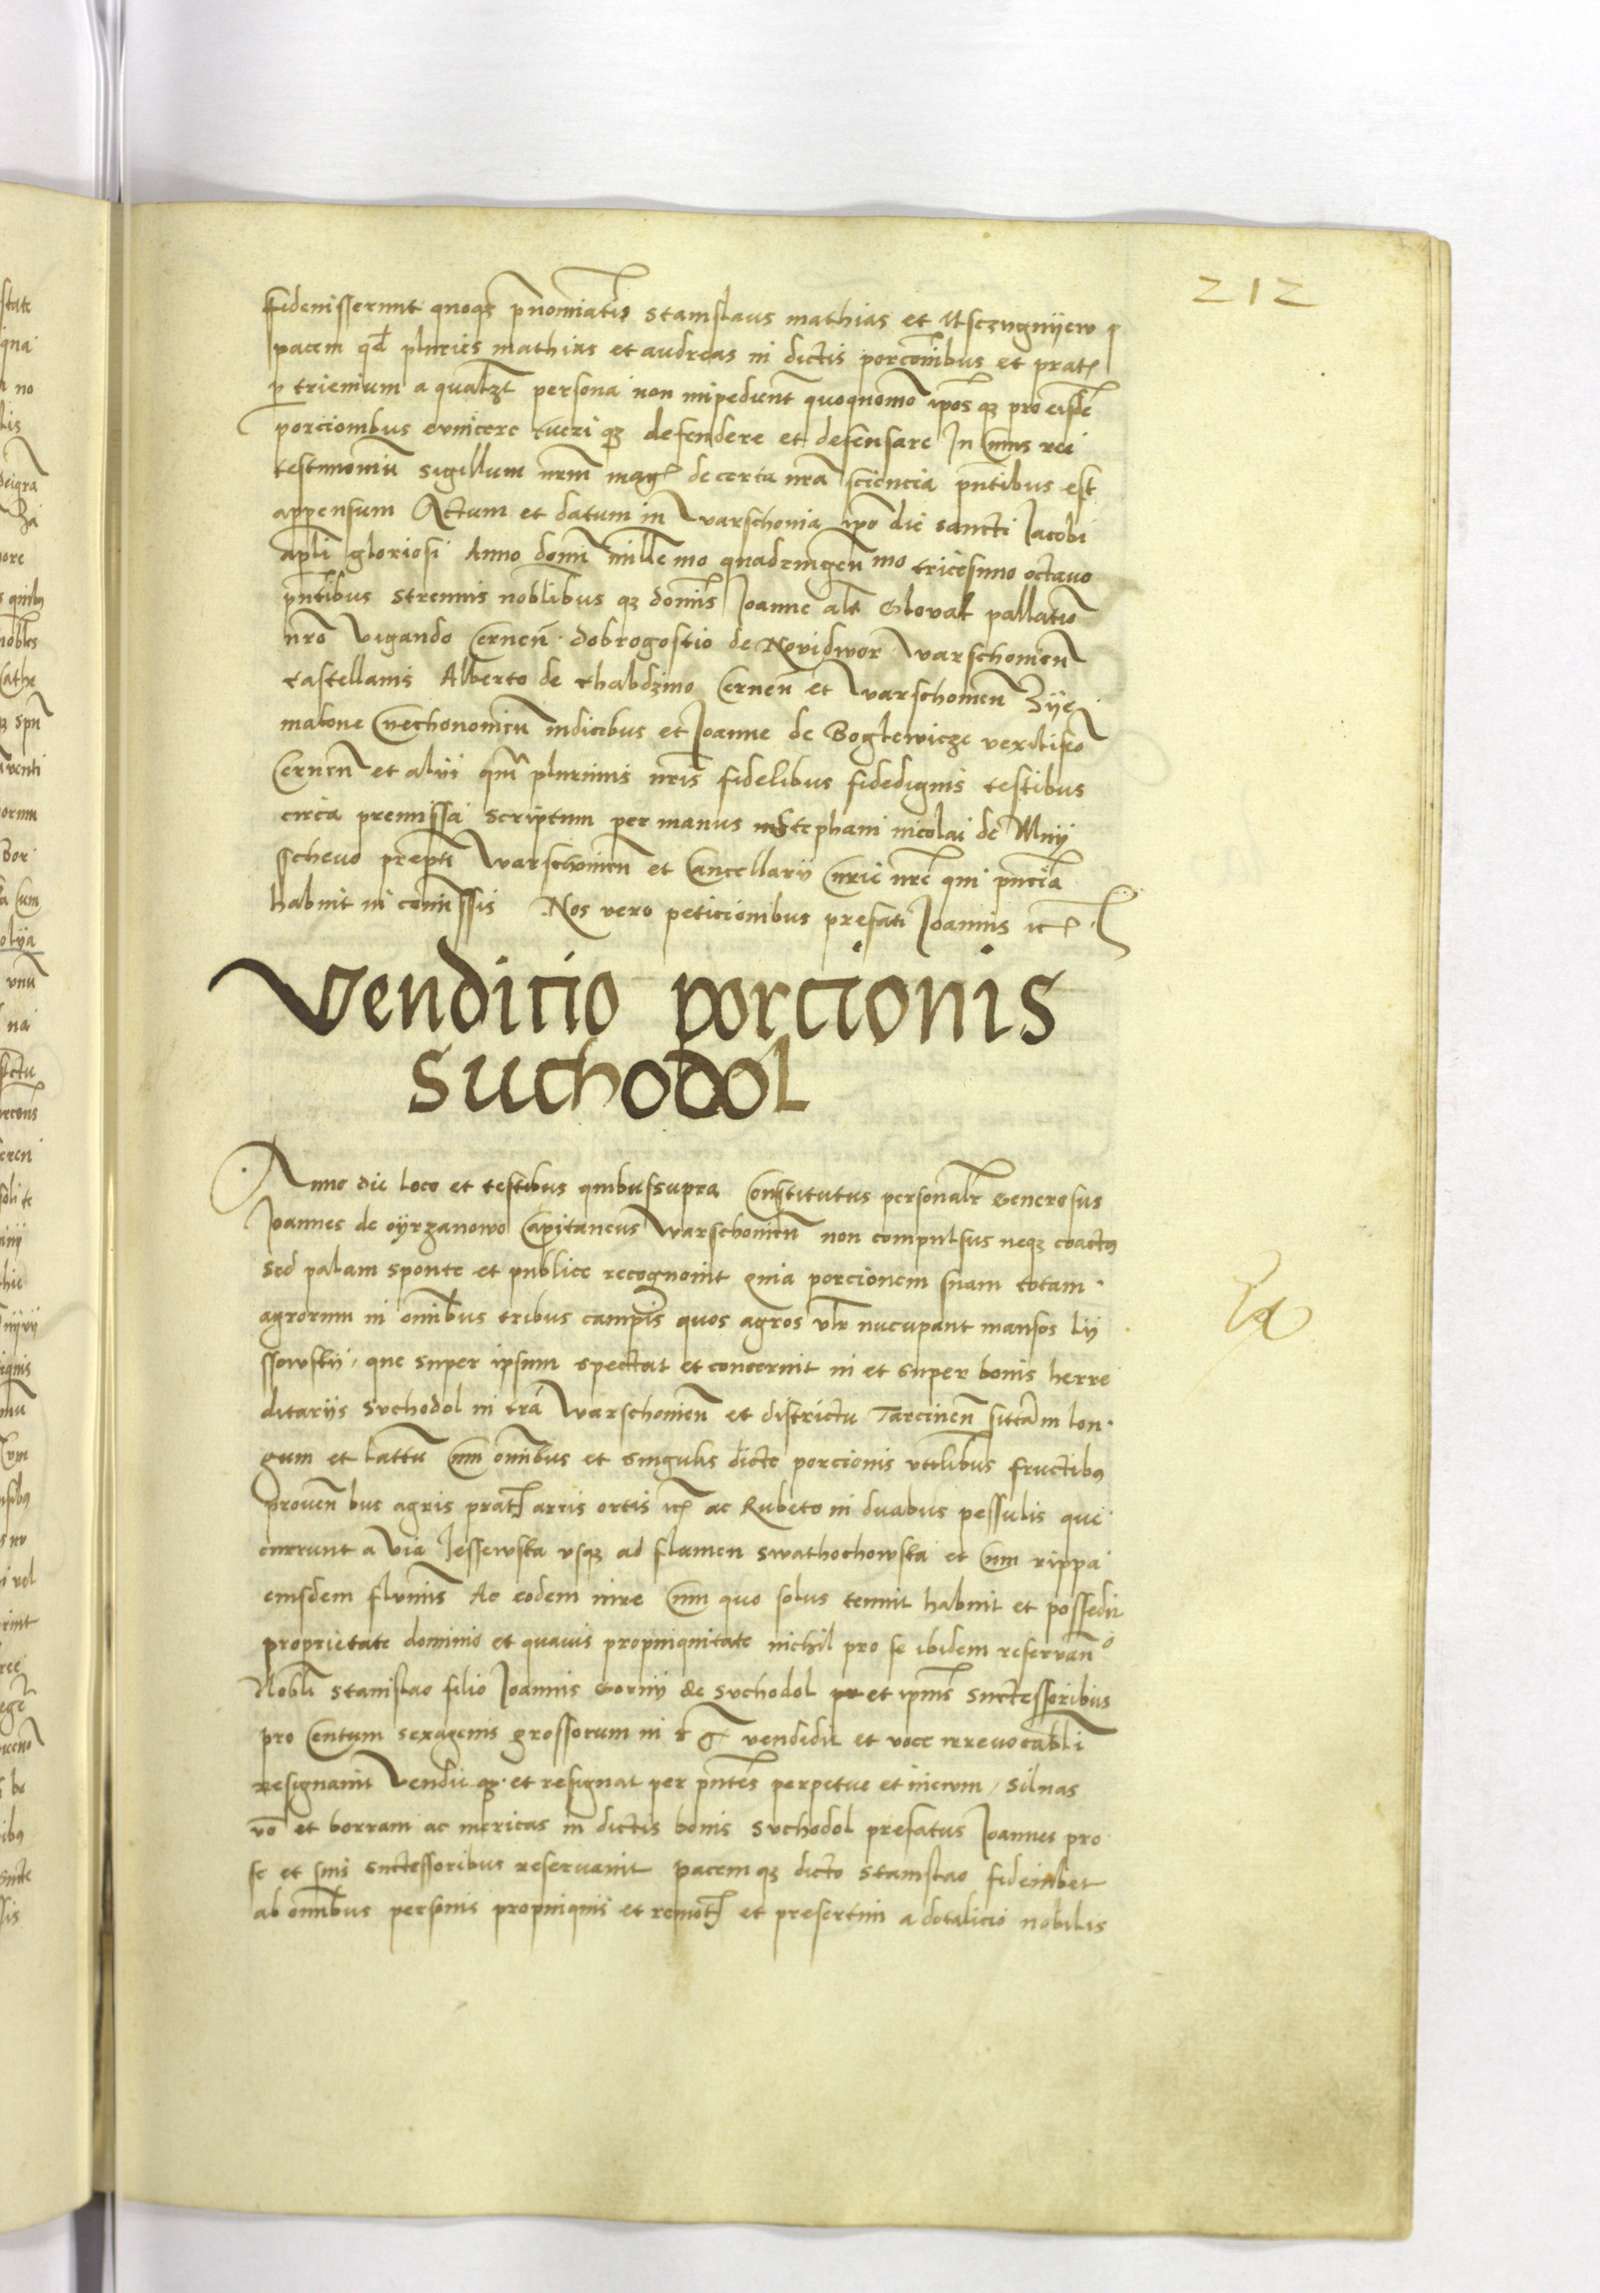 212
fideiusserunt quoqz pnominatis Stanislaus mathias et Msczugnijew
pacem qd pluries mathias et andreas in dictis porconibus et prat
p trienium a qualzt persona non impediunt quoquomo ipos qz pro eisde
porcionibus evincere tueri qz defendere et defensare In Cuius rei
testimoniu sigillum nrm mag de certa nra sciencia pntibus est
appensum Actum et datum in Warschouia ipo die sancti Jacobi
apli gloriosi Anno domi millemo quadringenmo tricesimo octauo
pntibus Strennuis noblibus qz domis Joanne alt Gloval pallatio
nro Vigando Cernen dobrogostio de Novidwor Warschouien
castellanis Alberto de Chabdzino Cernen et Warschouien Zije
matone Ciechonouien iudicibus et Joanne de Boglewicze vexilifeo
Cernen et alyi qm plurimis nris fidelibus fidedignis testibus
circa premissa scriptum per manus Stephani nicolai de Mnij
scheuo prepti Warschouien et Cancellarij Curie nre qui pncia
habuit in comissis Nos vero peticionibus prefati Joannis ic
Vendicio porcionis
Suchodol
Anno die loco et testibus quibussupra Constitutus personalr Generosus
Joannes de oyrzanowo Capitaneus Warschouien non compulsus neqz coactus
Sed palam sponte et publice recognouit quia porcionem suam totam
agrorum in omibus tribus campis quos agros vlr nucupant mansos lij
ssowskij, que super ipsum spectat et concernit in et super bonis herre
ditariis Suchodol in tra Warschouien et districtu Tarcinen sittam lon
gum et lattu Cum omibus et singulis dicte porcionis vtilibus fructibus
prouen bus agris prat arris ortis ic ac Rubeto in duabus pessulis que
currunt a via Jessewska vsqz ad flumen Swathochowska et Cum rippa
eiusdem fluminis Ac eodem iure Cum quo solus tenuit habuit et possedit
proprietate dominio et quauis propinquitate nichil pro se ibidem reseruando
Nobli Stanislao filio Joannis Gorny de Suchodol et ipius Suctessoribus
pro Centum sexagenis grossorum in vendidit et voce irreuocabli
resignauit Vendit qz et resignat per pntes perpetue et in eum, Siluas
vo et borram ac mericas in dictis bonis Suchodol prefatus Joannes pro
se et suis suctessoribus reseruauit pacem qz dicto Stanislao fideiubet
ab omibus personis propinquis et remot et presertim a dotalicio nobilis